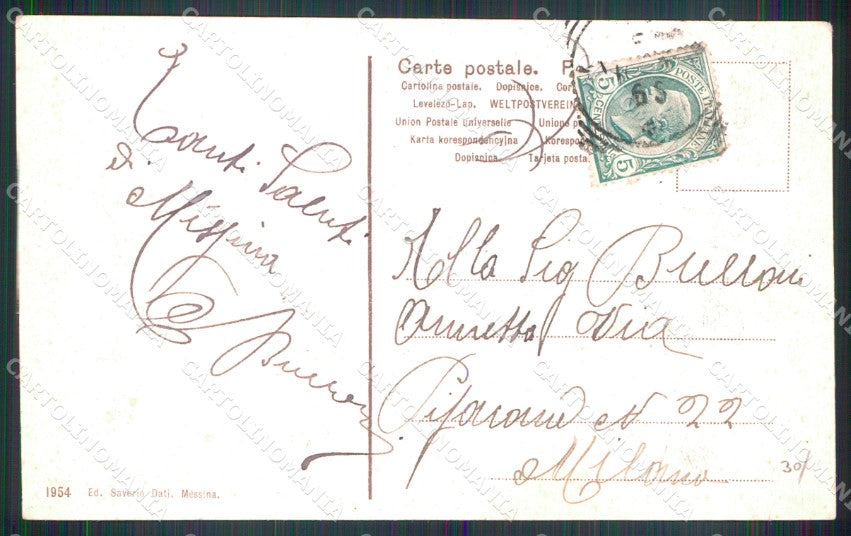 Tanti Saluti
di
Messina
Carte postale. P
Cartolina postale. Dopisnice. Cor
Levelező-Lap. WELTPOSTVEREIN
Union Postale Universelle Unione p
Karta korespondencyjna Korespon
Dopisnica. Tarjeta posta
POSTE ITALIANE
CENT
5 5
Alla Sig Burroni
Annetta Via
N 22
Milano
307
1954 Ed. Saverio Dati. Messina.
CARTOLINOMANIA